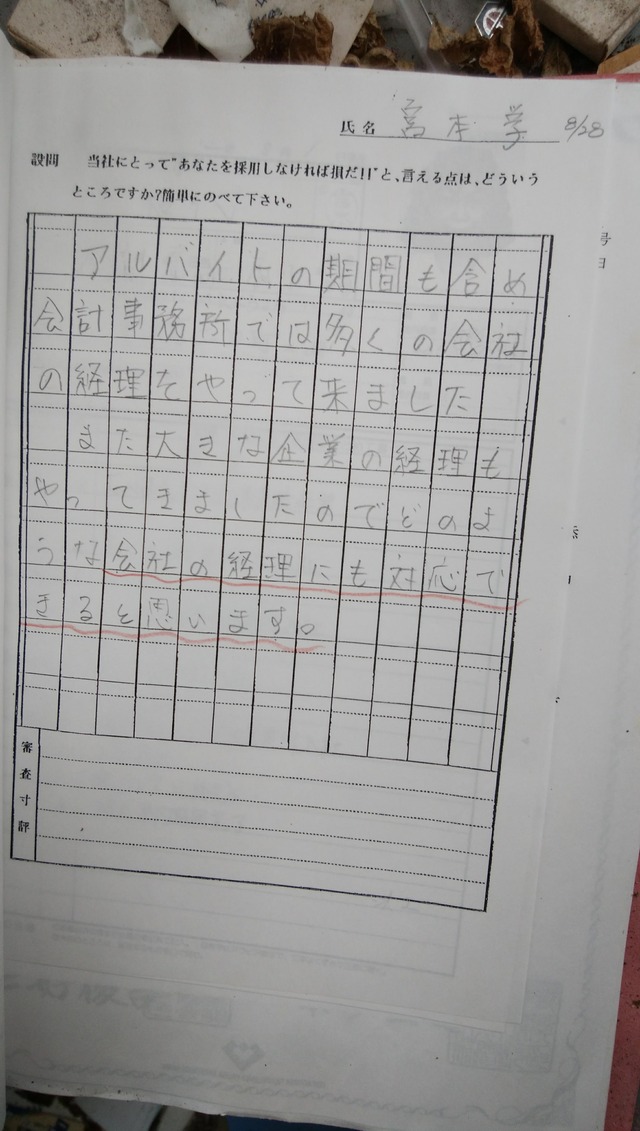 氏名 宮本学 8/28
設問 当社にとって"あなたを採用しなければ損だ!!"と、言える点は、どういう
ところですか?簡単にのべて下さい。
アルバイトの期間も含め
会計事務所では多くの会社
の経理をやって来ました
また大きな企業の経理も
やってきましたのでどのよ
うな会社の経理にも対応で
きると思います。
審査寸評